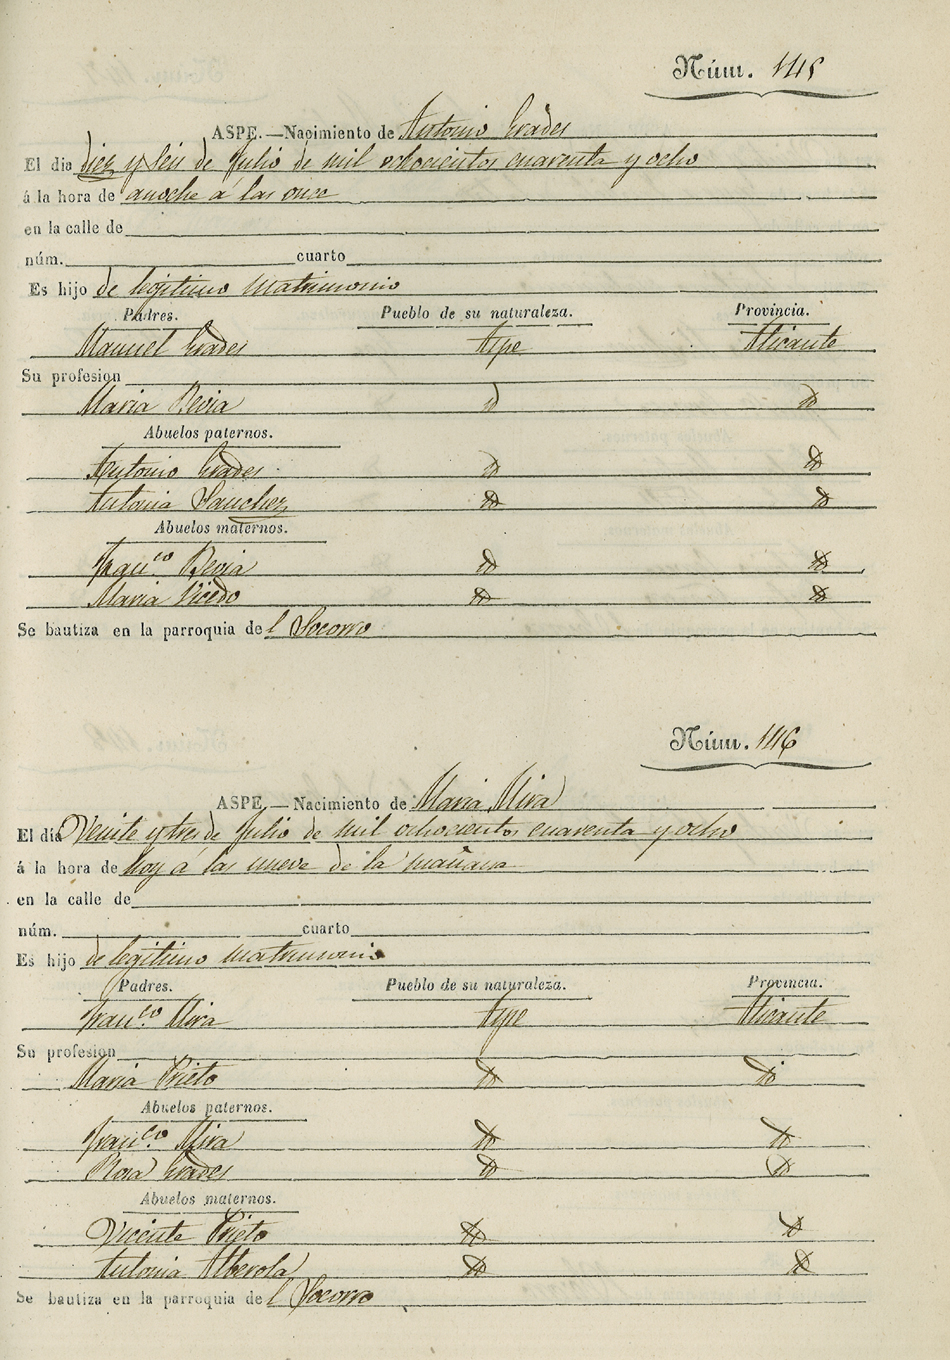 Núm. 145
ASPE.—Nacimiento de Antonio Erades
El dia diez y seis de Julio de mil ochocientos cuarenta y ocho
á la hora de anoche á las once
en la calle de
núm. cuarto
Es hijo de legitimo matrimonio
Padres. Pueblo de su naturaleza. Provincia.
Manuel Erades Aspe Alicante
Su profesion
Maria Bevia id id
Abuelos paternos.
Antonio Erades id id
Antonia Sanchez id id
Abuelos maternos.
Franco. Bevia id id
Maria Vicedo id id
Se bautiza en la parroquia del Socorro
Núm. 146
ASPE.—Nacimiento de Maria Mira
El día Veinte y tres de Julio de mil ochocientos cuarenta y ocho
á la hora de hoy á las nueve de la mañana
en la calle de
núm. cuarto
Es hijo de legitimo matrimonio
Padres. Pueblo de su naturaleza. Provincia.
Franco. Mira Aspe Alicante
Su profesion
Maria Prieto id id
Abuelos paternos.
Franco. Mira id id
Rosa Erades id id
Abuelos maternos.
Vicente Prieto id id
Antonia Alberola id id
Se bautiza en la parroquia del Socorro